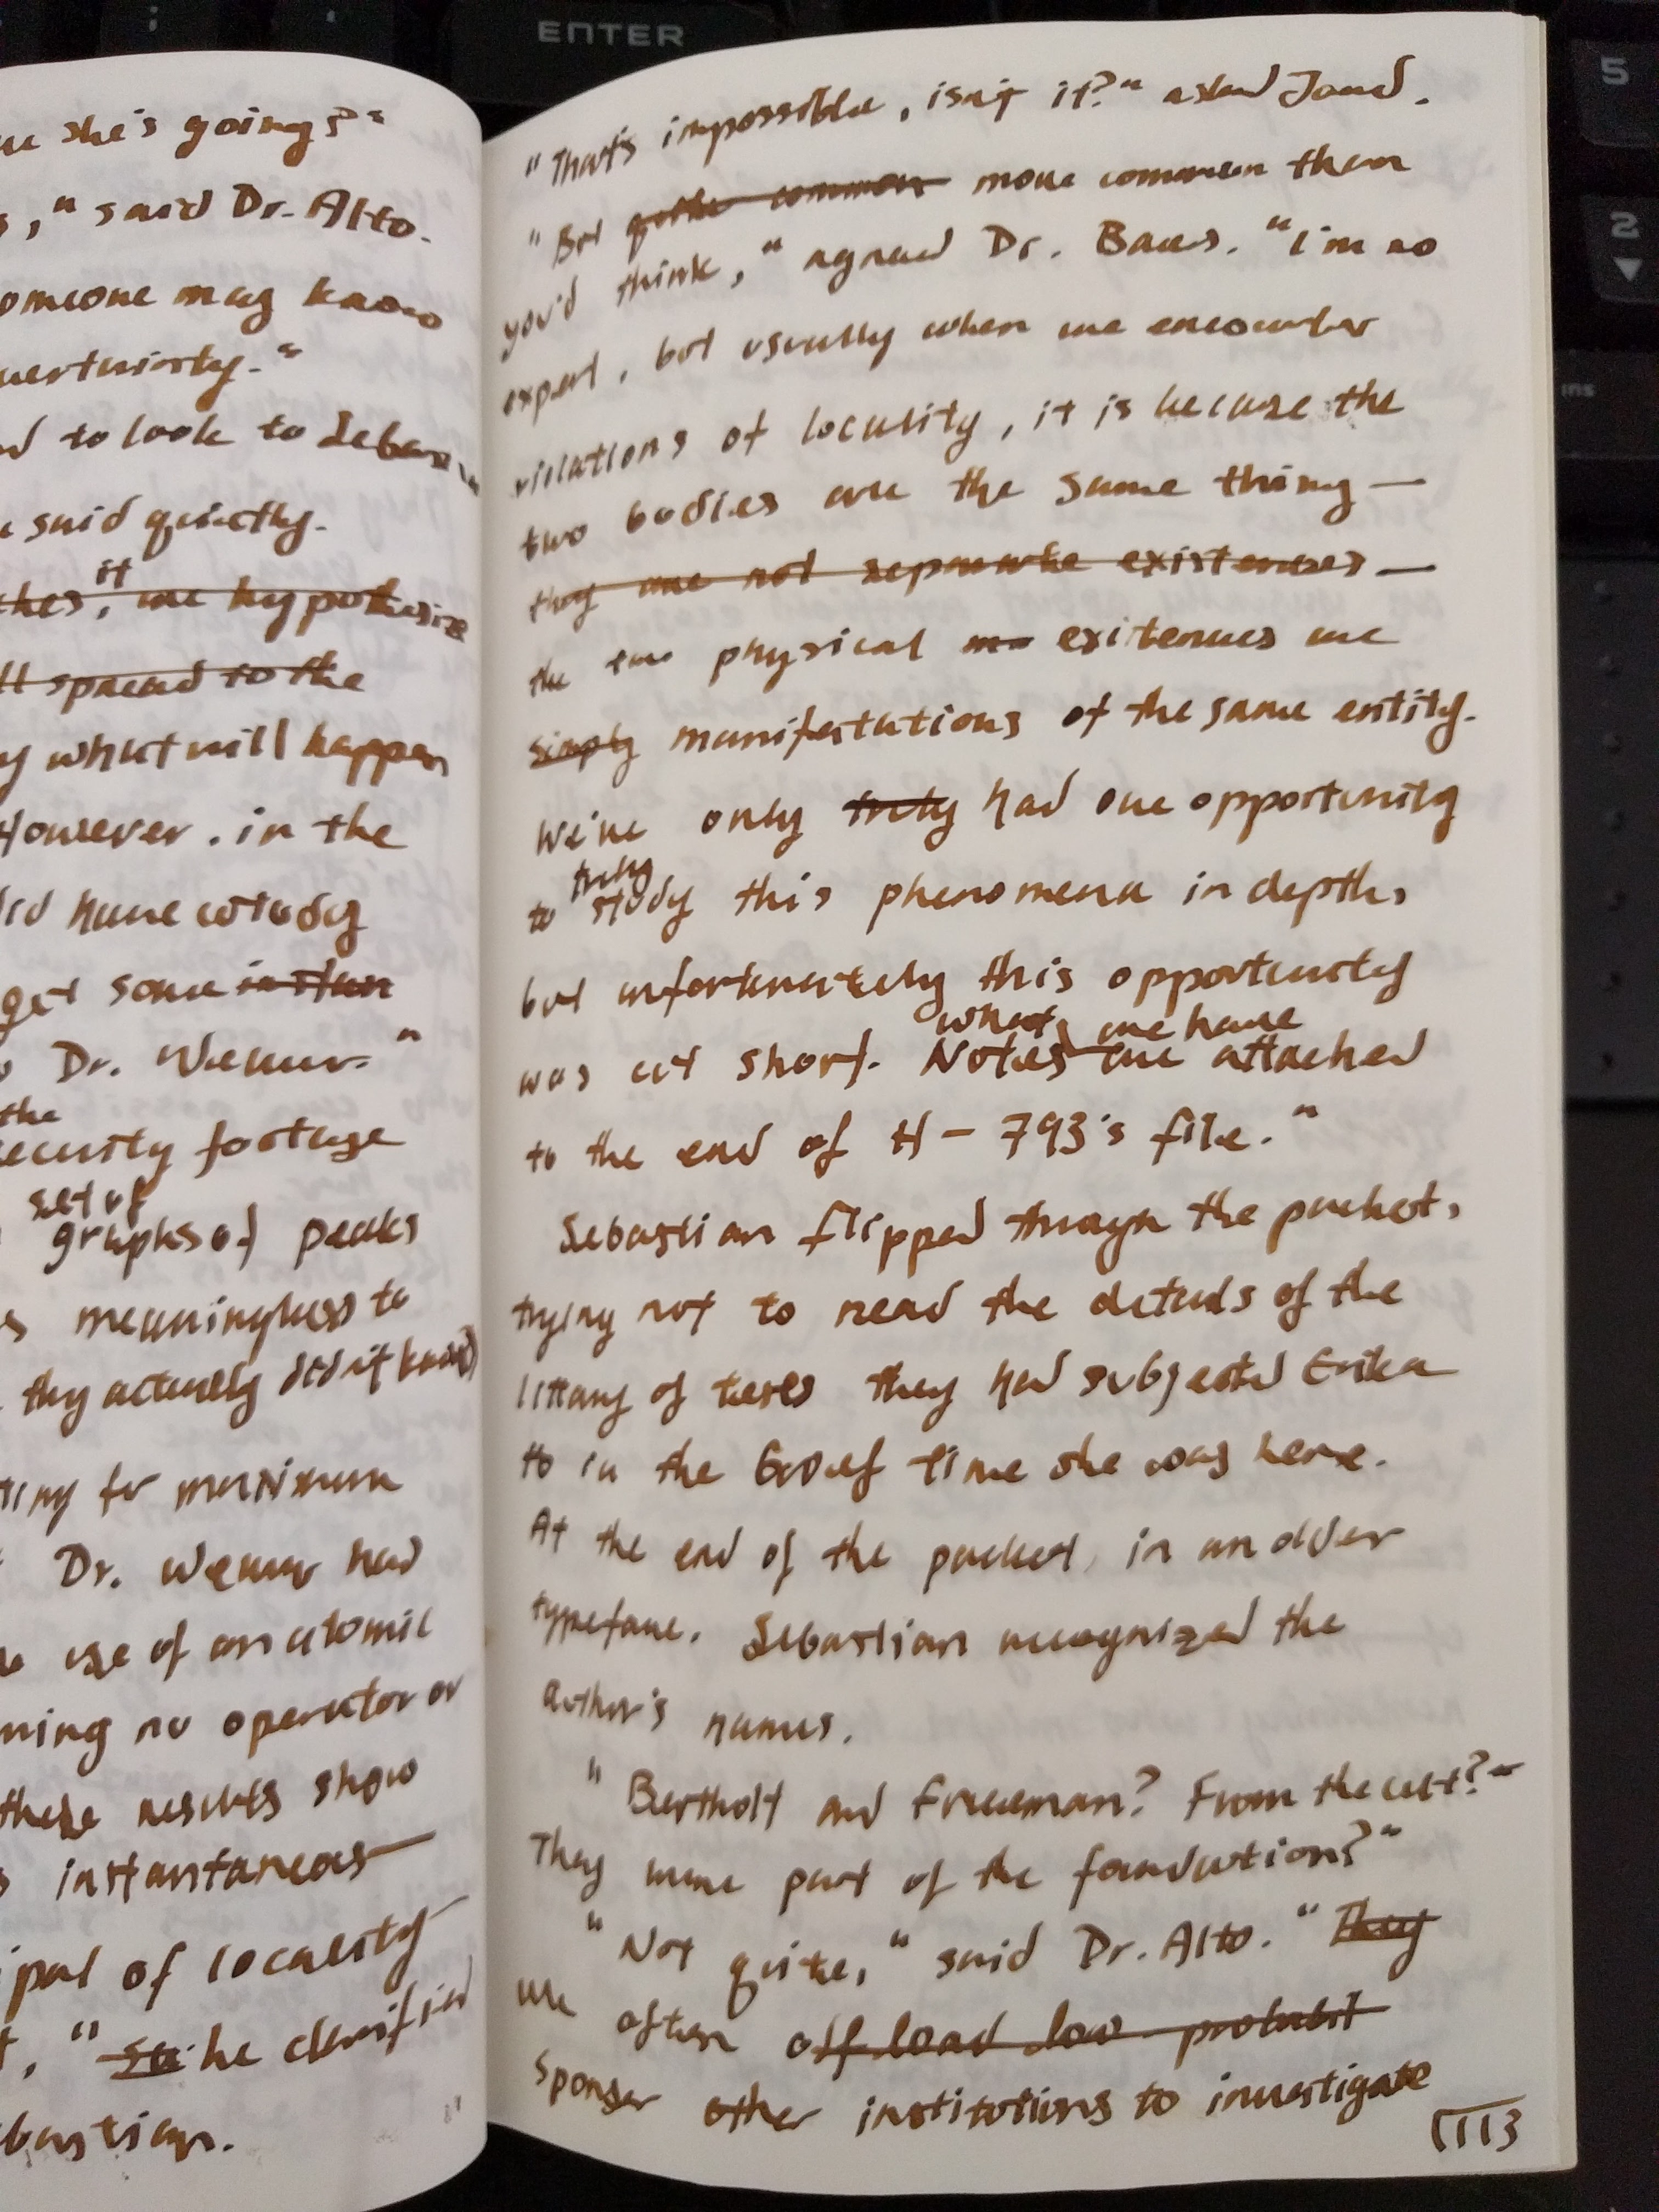 ENTER
5
2
ins
she's going?"
," said Dr. Alto.
someone may know
to look to Sebas
said quietly.
it
thes, we hypothesize
ll spread to the
y what will happen
However. in the
did have wrody
get some in their
Dr. Wemur."
the
security footage
set of
graphs of peaks
s meaningless to
they actually didn't know)
ting for maximum
Dr. Wemur had
use of an atomic
ning no operator or
these results show
s instantaneous—
ipal of locality—
," he clarified
bastian.
"That's impossible, isn't it?" asked Jared.
"But quite common more common than
you'd think," agreed Dr. Baes. "I'm no
expert, but usually when we encounter
violations of locality, it is because the
two bodies are the same thing—
they are not separate existences—
the two physical exitences are
simply manifestations of the same entity.
We've only truly had one opportunity
truly
to study this phenomena in depth,
but unfortunately this opportunity
what we have
was cut short. Notes are attached
to the end of H-793's file."
Sebastian flipped through the packet,
trying not to read the details of the
littany of tests they had subjected Erika
to in the brief time she was here.
At the end of the packet, in an older
typeface. Sebastian recognized the
author's names.
"Bertholt and Freeman? From the cult?"
They were part of the foundation?"
"Not quite," said Dr. Alto. "They
we often off load low probabit
sponser other institutions to investigate
113